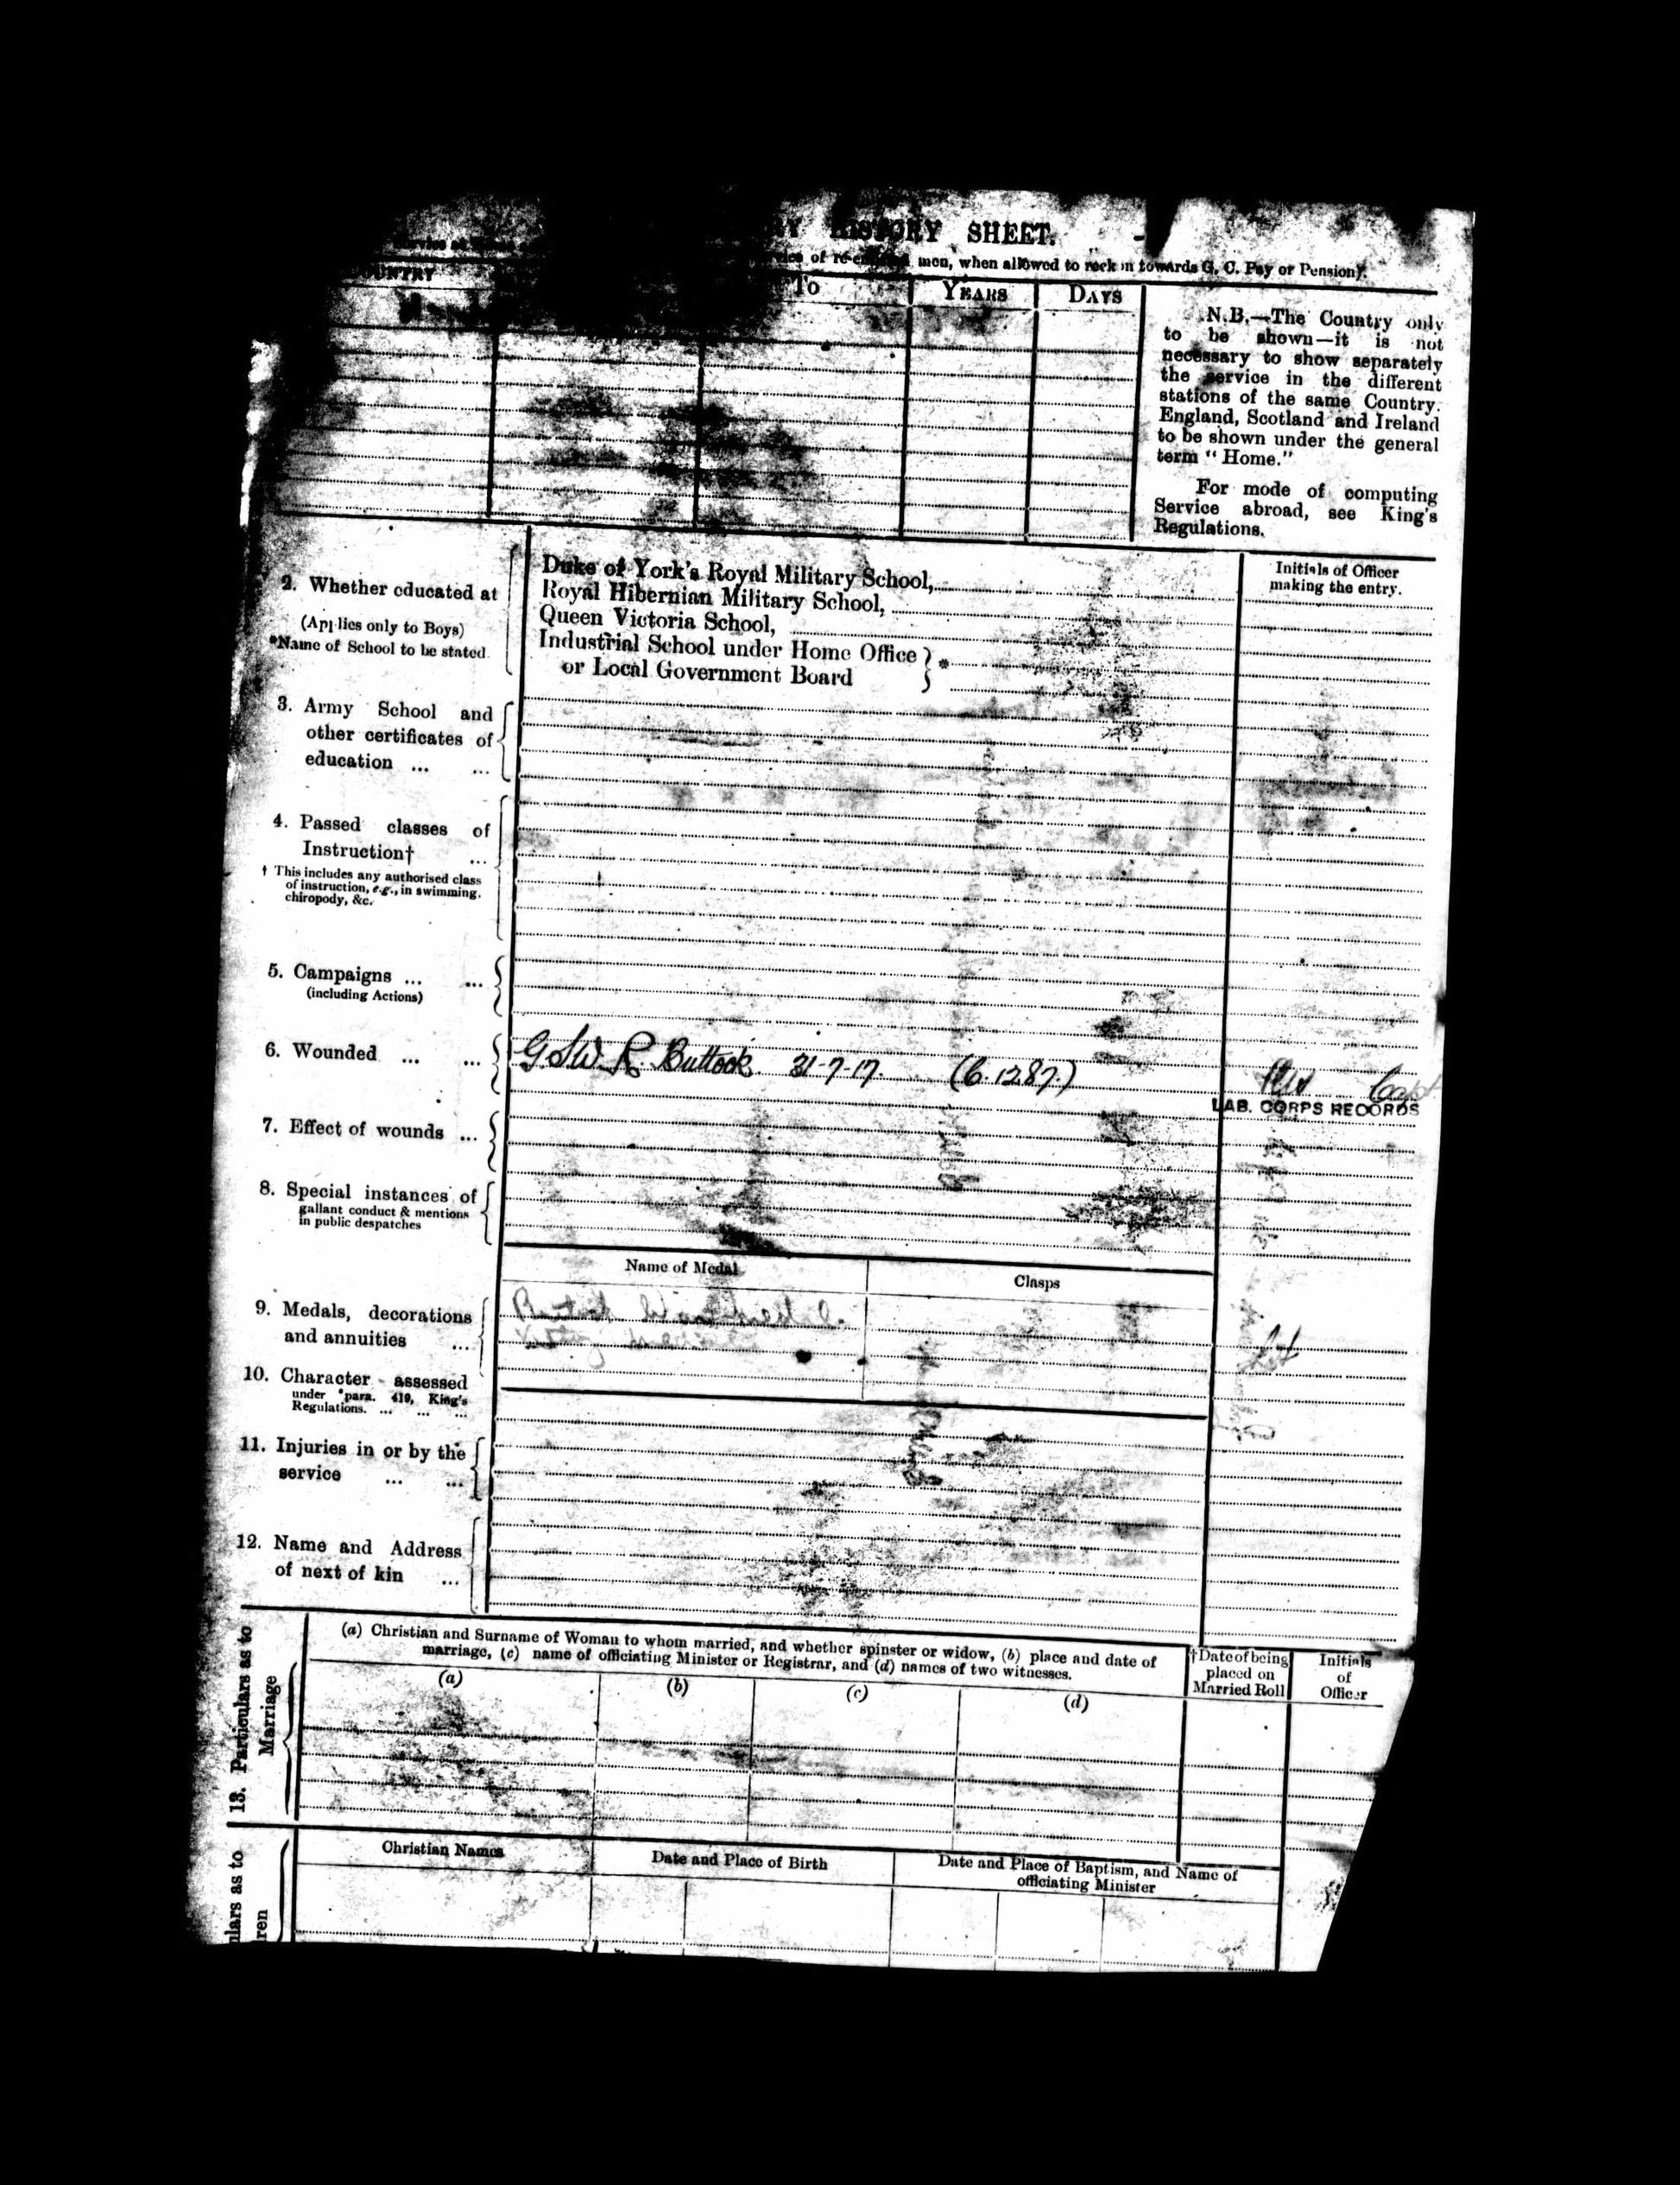 HISTORY SHEET.
of re- men, when allowed to reckon towards G. C. Pay or Pension).
COUNTRY To YEARS DAYS
N.B.—The Country only
to be shown—it is not
necessary to show separately
the service in the different
stations of the same Country.
England, Scotland and Ireland
to be shown under the general
term "Home."
For mode of computing
Service abroad, see King's
Regulations.
Initials of Officer
making the entry.
2. Whether educated at
(Applies only to Boys)
*Name of School to be stated
Duke of York's Royal Military School,
Royal Hibernian Military School,
Queen Victoria School,
Industrial School under Home Office } *
or Local Government Board
3. Army School and
other certificates of
education ... ...
4. Passed classes of
Instruction† ...
† This includes any authorised class
of instruction, e.g., in swimming,
chiropody, &c.
5. Campaigns ... ...
(including Actions)
6. Wounded ... ... G.S.W. R. Buttock 31-7-17. (6.1287.) Capt.
LAB. CORPS RECORDS
7. Effect of wounds ...
8. Special instances of
gallant conduct & mentions
in public despatches
Name of Medal Clasps
9. Medals, decorations
and annuities ...
British War medal.
Victory medal
10. Character assessed
under para. 419, King's
Regulations. ... ... ...
11. Injuries in or by the
service ... ...
12. Name and Address
of next of kin ...
13. Particulars as to
Marriage
(a) Christian and Surname of Woman to whom married, and whether spinster or widow, (b) place and date of
marriage, (c) name of officiating Minister or Registrar, and (d) names of two witnesses.
†Date of being
placed on
Married Roll
Initials
of
Officer
(a) (b) (c) (d)
Christian Names Date and Place of Birth Date and Place of Baptism, and Name of
officiating Minister